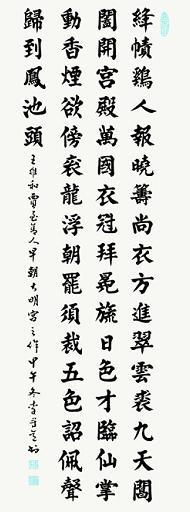 絳幘鷄人報曉籌尚衣方進翠雲裘九天閶
闔開宮殿萬國衣冠拜冕旒日色才臨仙掌
動香煙欲傍衮龍浮朝罷須裁五色詔佩聲
歸到鳳池頭
王維和賈至舍人早朝大明宮之作甲午冬李